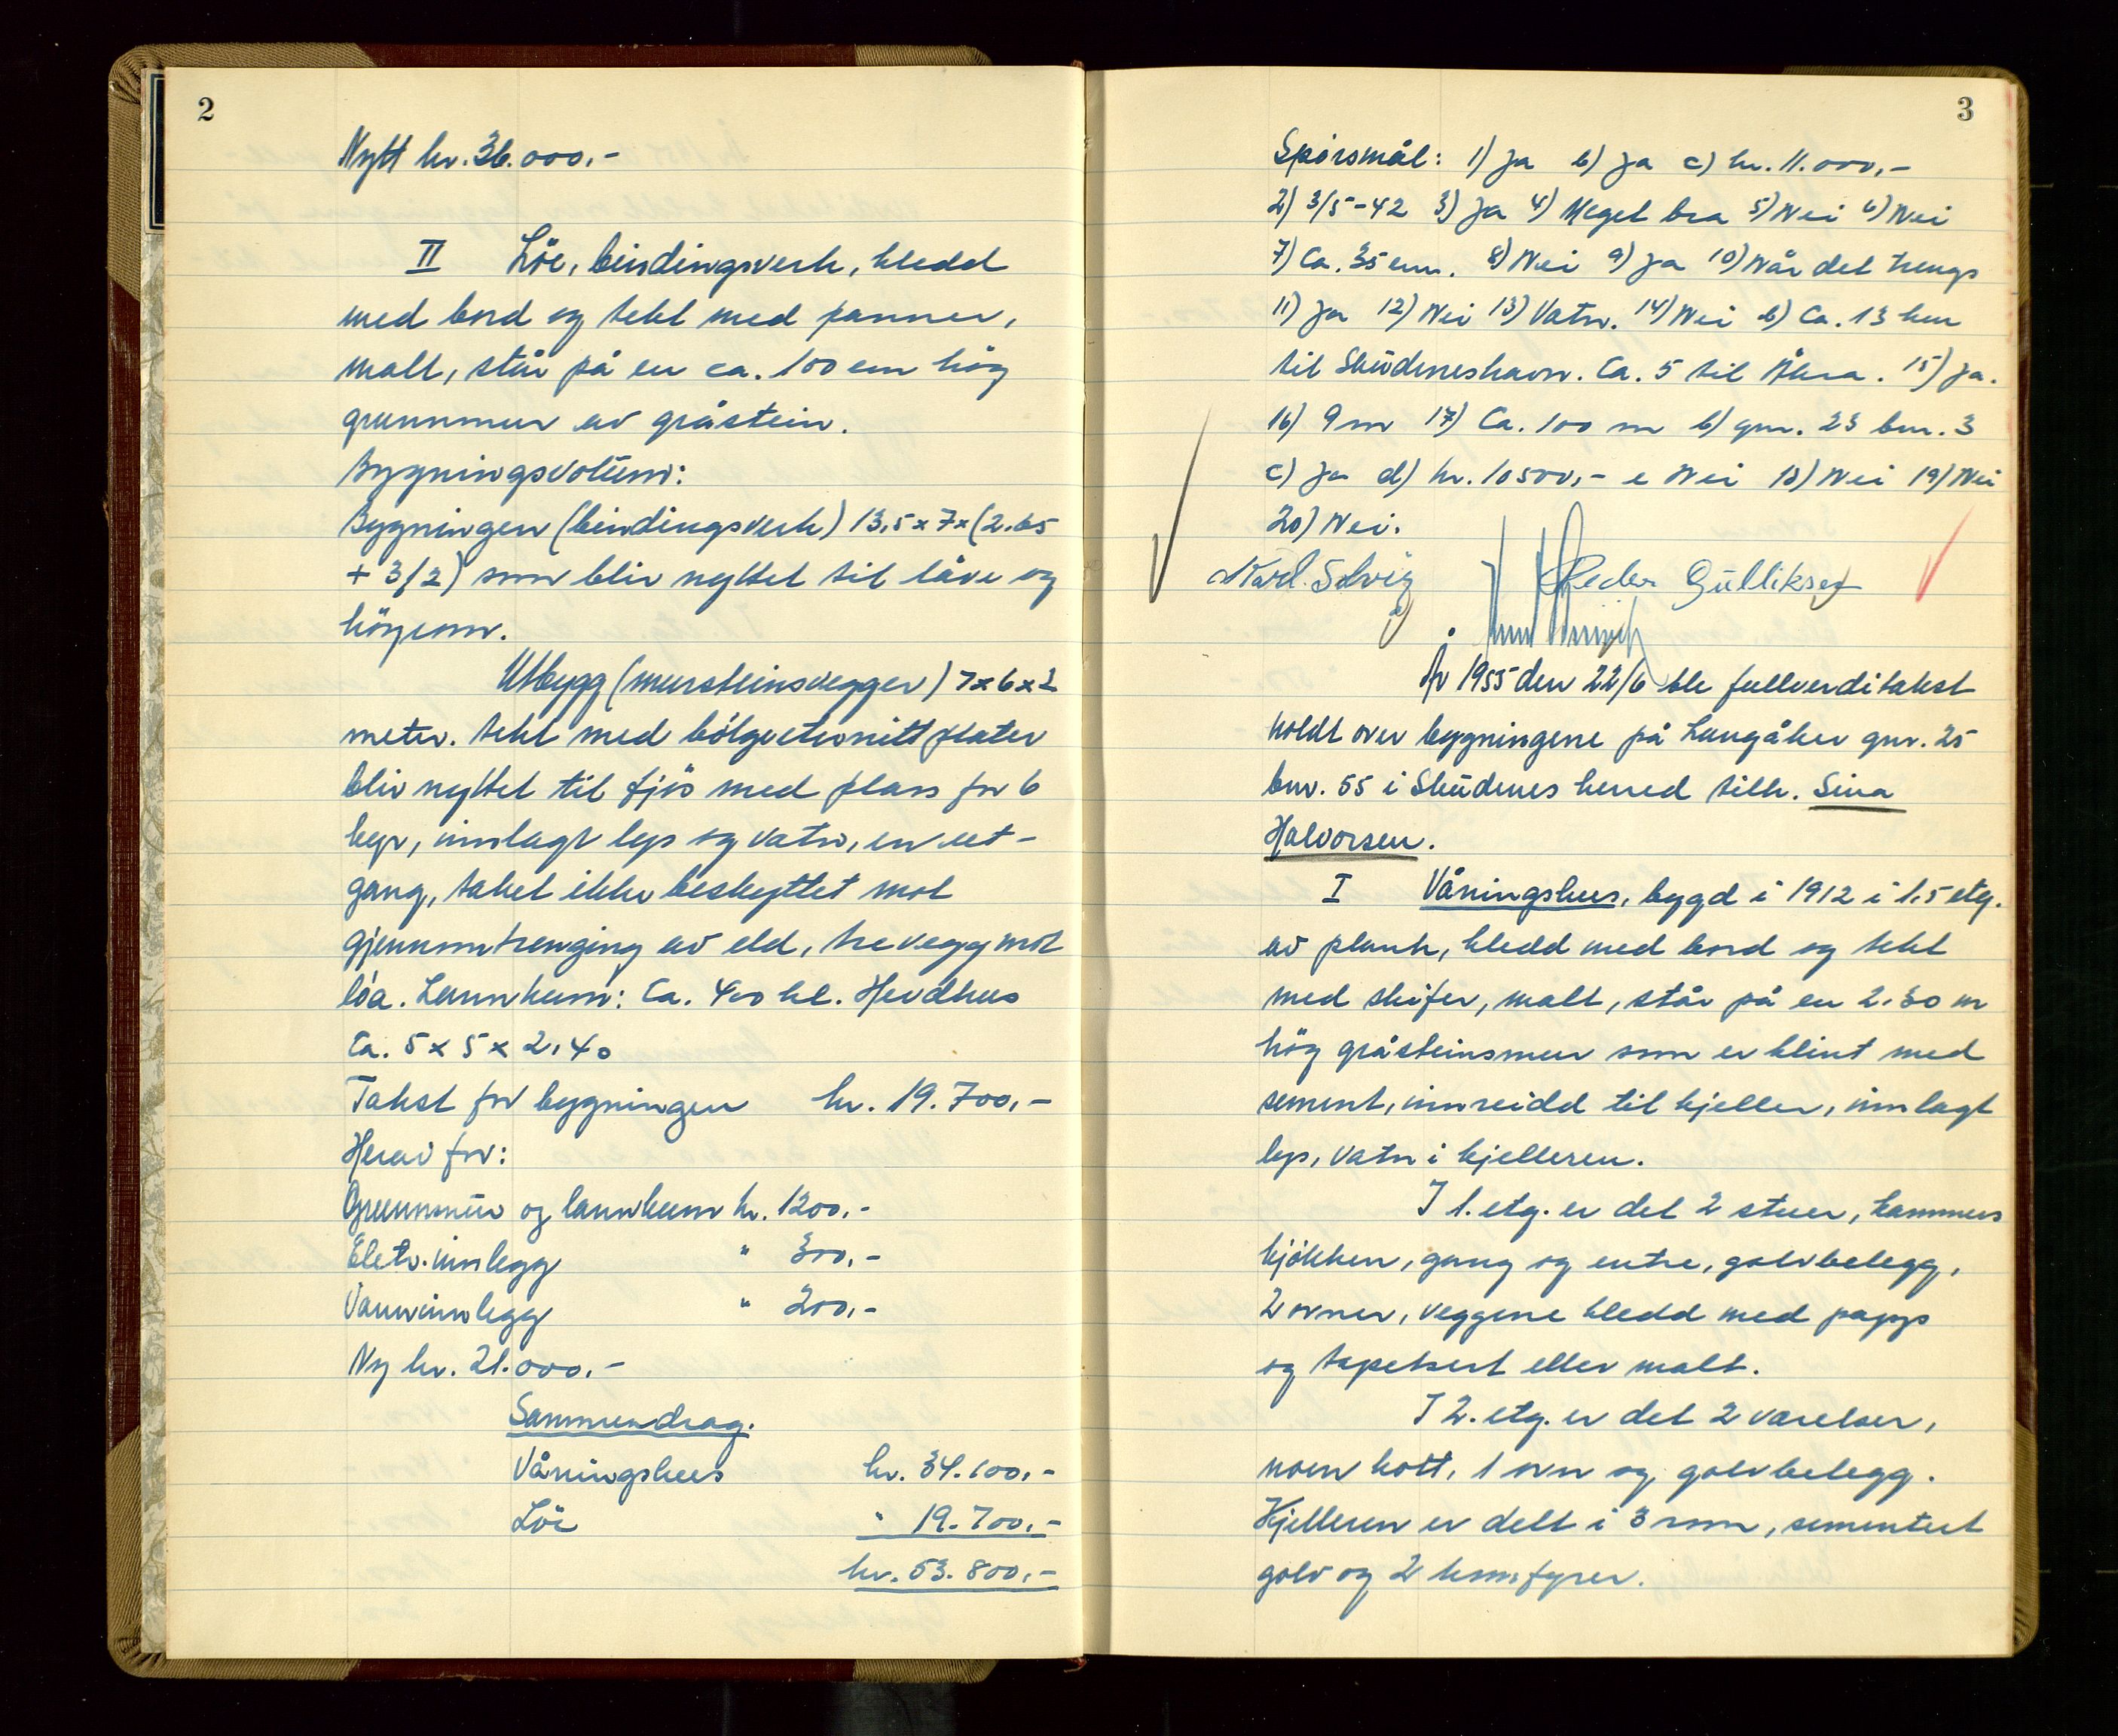 2
Nytt kr. 36.000,-
II Löe, bindingsverk, kledd
med bord og tekt med panner,
malt, står på en ca. 100 cm hög
grunnmur av gråstein.
Bygningsvolum:
Bygningen (bindingsverk) 13,5 x 7 x (2.65
+ 3/2) som blir nyttet til låve og
höyrom.
Utbygg (mursteinsvegger) 7 x 6 x 2
meter. tekt med bölgeeternittplater
blir nyttet til fjös med plass for 6
kyr, innlagt lys og vatn, en ut-
gang, taket ikke beskyttet mot
gjennomtrenging av eld, trevegg mot
löa. Lannkum: Ca. 400 hl. Herdhus
Ca. 5 x 5 x 2,40
Takst for bygningen kr. 19.700,-
Herav for:
Grunnmur og lannkum kr. 1200,-
Eletr. innlegg " 300,-
Vanninnlegg " 200,-
Ny kr. 21.000,-
Sammendrag.
Våningshus kr. 34.100,-
Löe " 19.700,-
kr. 53.800,-
3
Spörsmål: 1) Ja b) Ja c) kr. 11.000,-
2) 3/5-42 3) Ja 4) Meget bra 5) Nei 6) Nei
7) Ca. 35 cm. 8) Nei 9) Ja 10) Når det trengs
11) Ja 12) Nei 13) Vatn. 14) Nei b) Ca. 13 km
til Skudeneshavn. Ca. 5 til Åkra. 15) Ja.
16) 9 m 17) Ca. 100 m b) gnr. 23 bnr. 3
c) Ja d) kr. 10500,- e Nei 18) Nei 19) Nei
20) Nei.
Karl. Solvig Peder Gulliksen
År 1955 den 22/6 ble fullverditakst
holdt over bygningene på Langåker gnr. 25
bnr. 55 i Skudenes herred tilh. Sina
Halvorsen.
I Våningshus, bygd i 1912 i 1.5 etg.
av plank, kledd med bord og tekt
med skifer, malt, står på en 2.30 m
hög gråsteinsmur som er klint med
sement, innreidd til kjeller, innlagt
lys, vatn i kjelleren.
I 1. etg. er det 2 stuer, kammers
kjökken, gang og entre, golvbelegg,
2 ovner, veggene kledd med papp
og tapetsert eller malt.
I 2. etg. er det 2 varelser,
noen kott, 1 ovn og golvbelegg.
Kjelleren er delt i 3 rom, sementert
golv og 2 komfyrer.